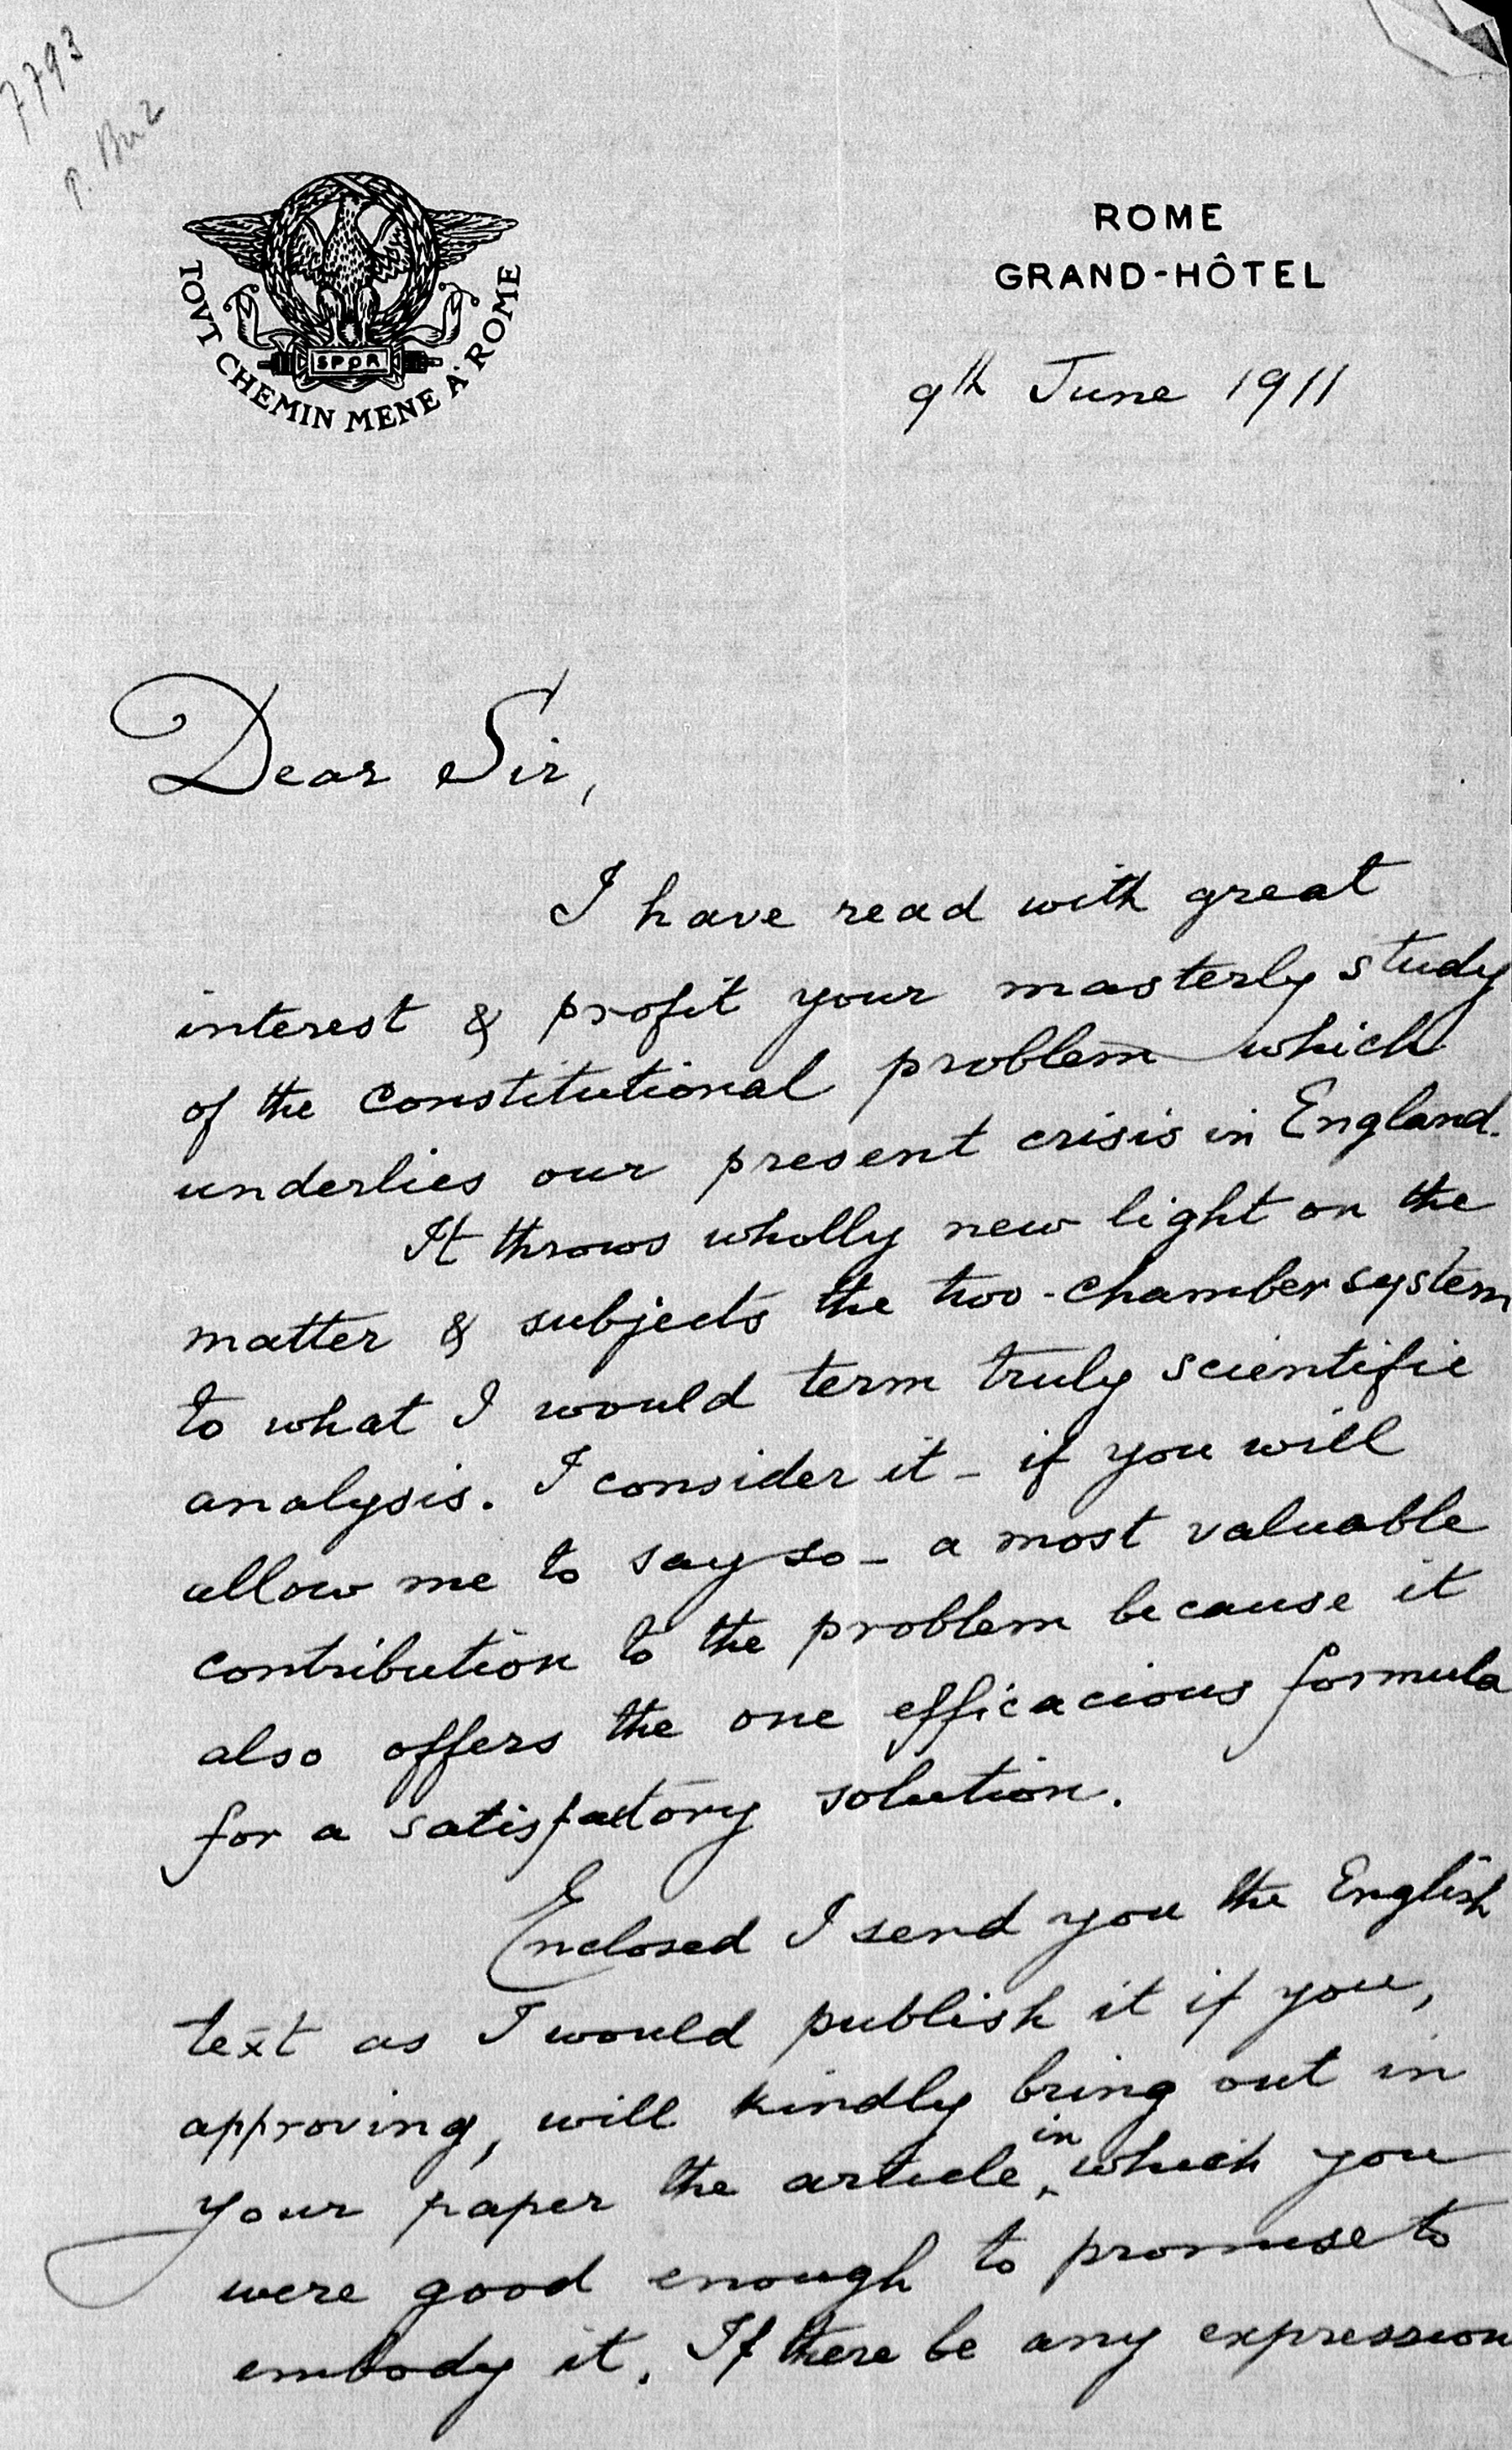 7793
ROME
GRAND-HÔTEL
TOVT CHEMIN MENE A· ROME
SPQR
9th June 1911
Dear Sir,
I have read with great
interest & profit your masterly study
of the constitutional problem which
underlies our present crisis in England.
It throws wholly new light on the
matter & subjects the two-chamber system
to what I would term truly scientific
analysis. I consider it – if you will
allow me to say so – a most valuable
contribution to the problem because it
also offers the one efficacious formula
for a satisfactory solution.
Enclosed I send you the English
text as I would publish it if you,
approving, will kindly bring out in
your paper the article in which you
were good enough to promise to
embody it. If there be any expression